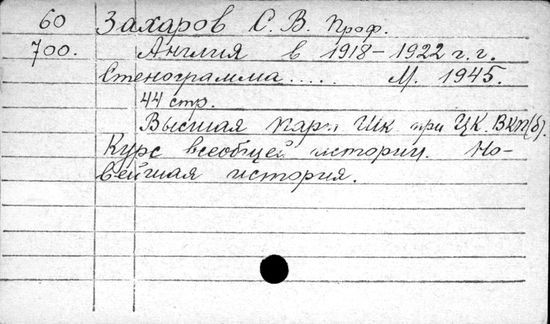 60 Захаров С. В. Проф.
700. Англия в 1918–1922 г.г.
Стенограмма..... М. 1945.
44 стр.
Высшая парт. Шк при ЦК. ВКП(б).
Курс всеобщей истории. Но-
вейшая история.